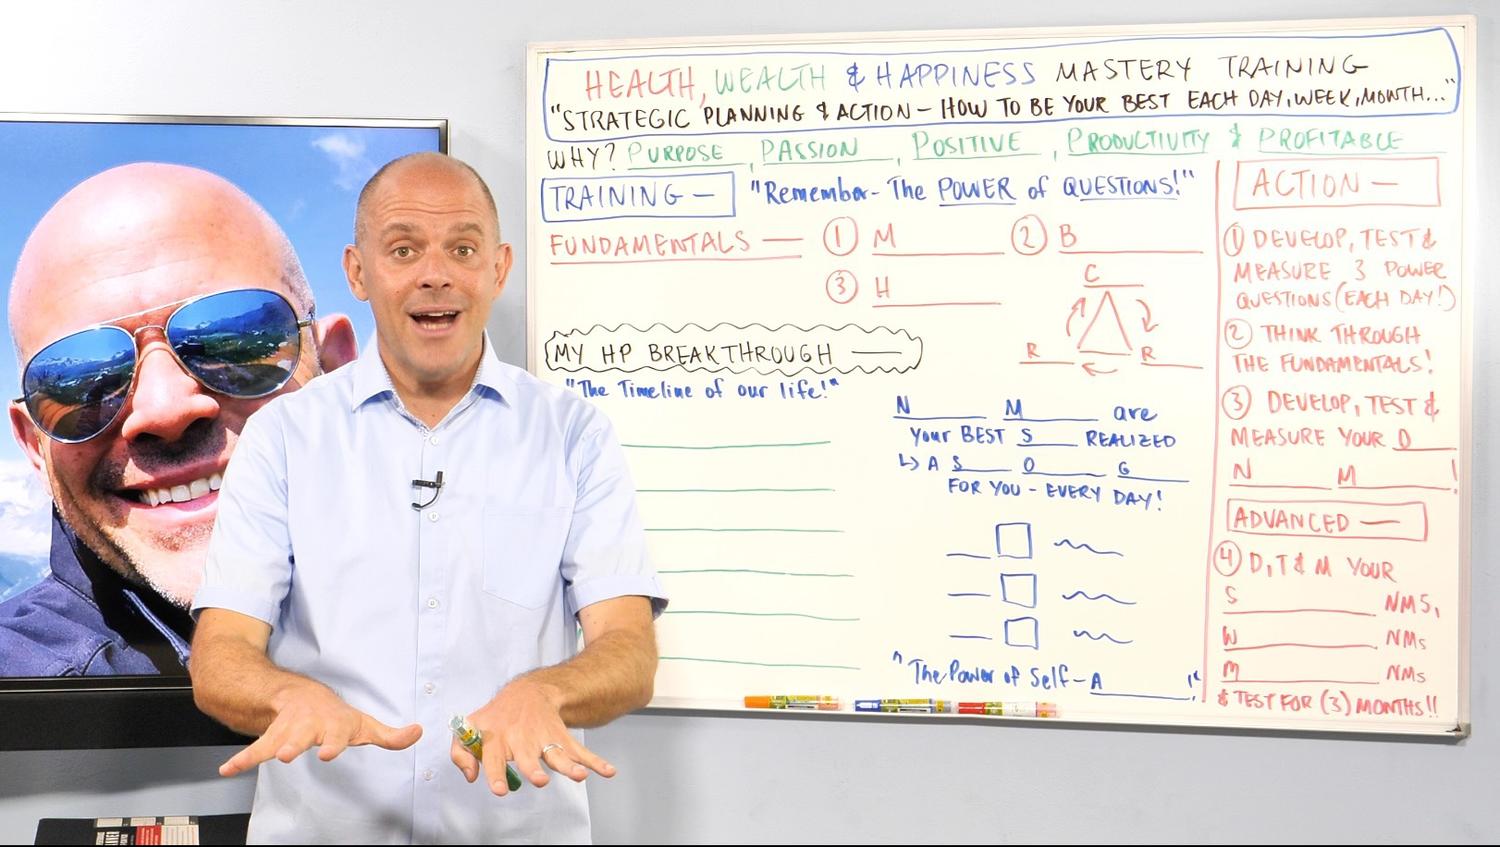 HEALTH, WEALTH & HAPPINESS MASTERY TRAINING
"STRATEGIC PLANNING & ACTION - HOW TO BE YOUR BEST EACH DAY, WEEK, MONTH..."
WHY? PURPOSE, PASSION, POSITIVE, PRODUCTIVITY & PROFITABLE
TRAINING - "Remember - The POWER of QUESTIONS!"
FUNDAMENTALS — ① M ② B
③ H
C
R R
MY HP BREAKTHROUGH —
"The Timeline of our life!"
N M are
Your BEST S REALIZED
↳ A S O G
FOR YOU - EVERY DAY!
"The Power of Self - A !"
ACTION -
① DEVELOP, TEST &
MEASURE 3 POWER
QUESTIONS (EACH DAY!)
② THINK THROUGH
THE FUNDAMENTALS!
③ DEVELOP, TEST &
MEASURE YOUR D
N M !
ADVANCED —
④ D, T & M YOUR
S NMS,
W NMs
M NMs
& TEST FOR (3) MONTHS!!